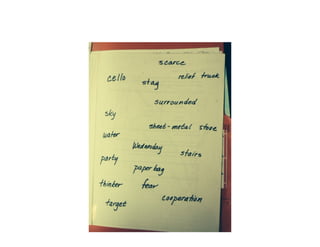 scarce
cello stay relief truck
surrounded
sky
sheet-metal stove
water
Wednesday
stairs
party
paper bag
thinker fear
cooperation
target